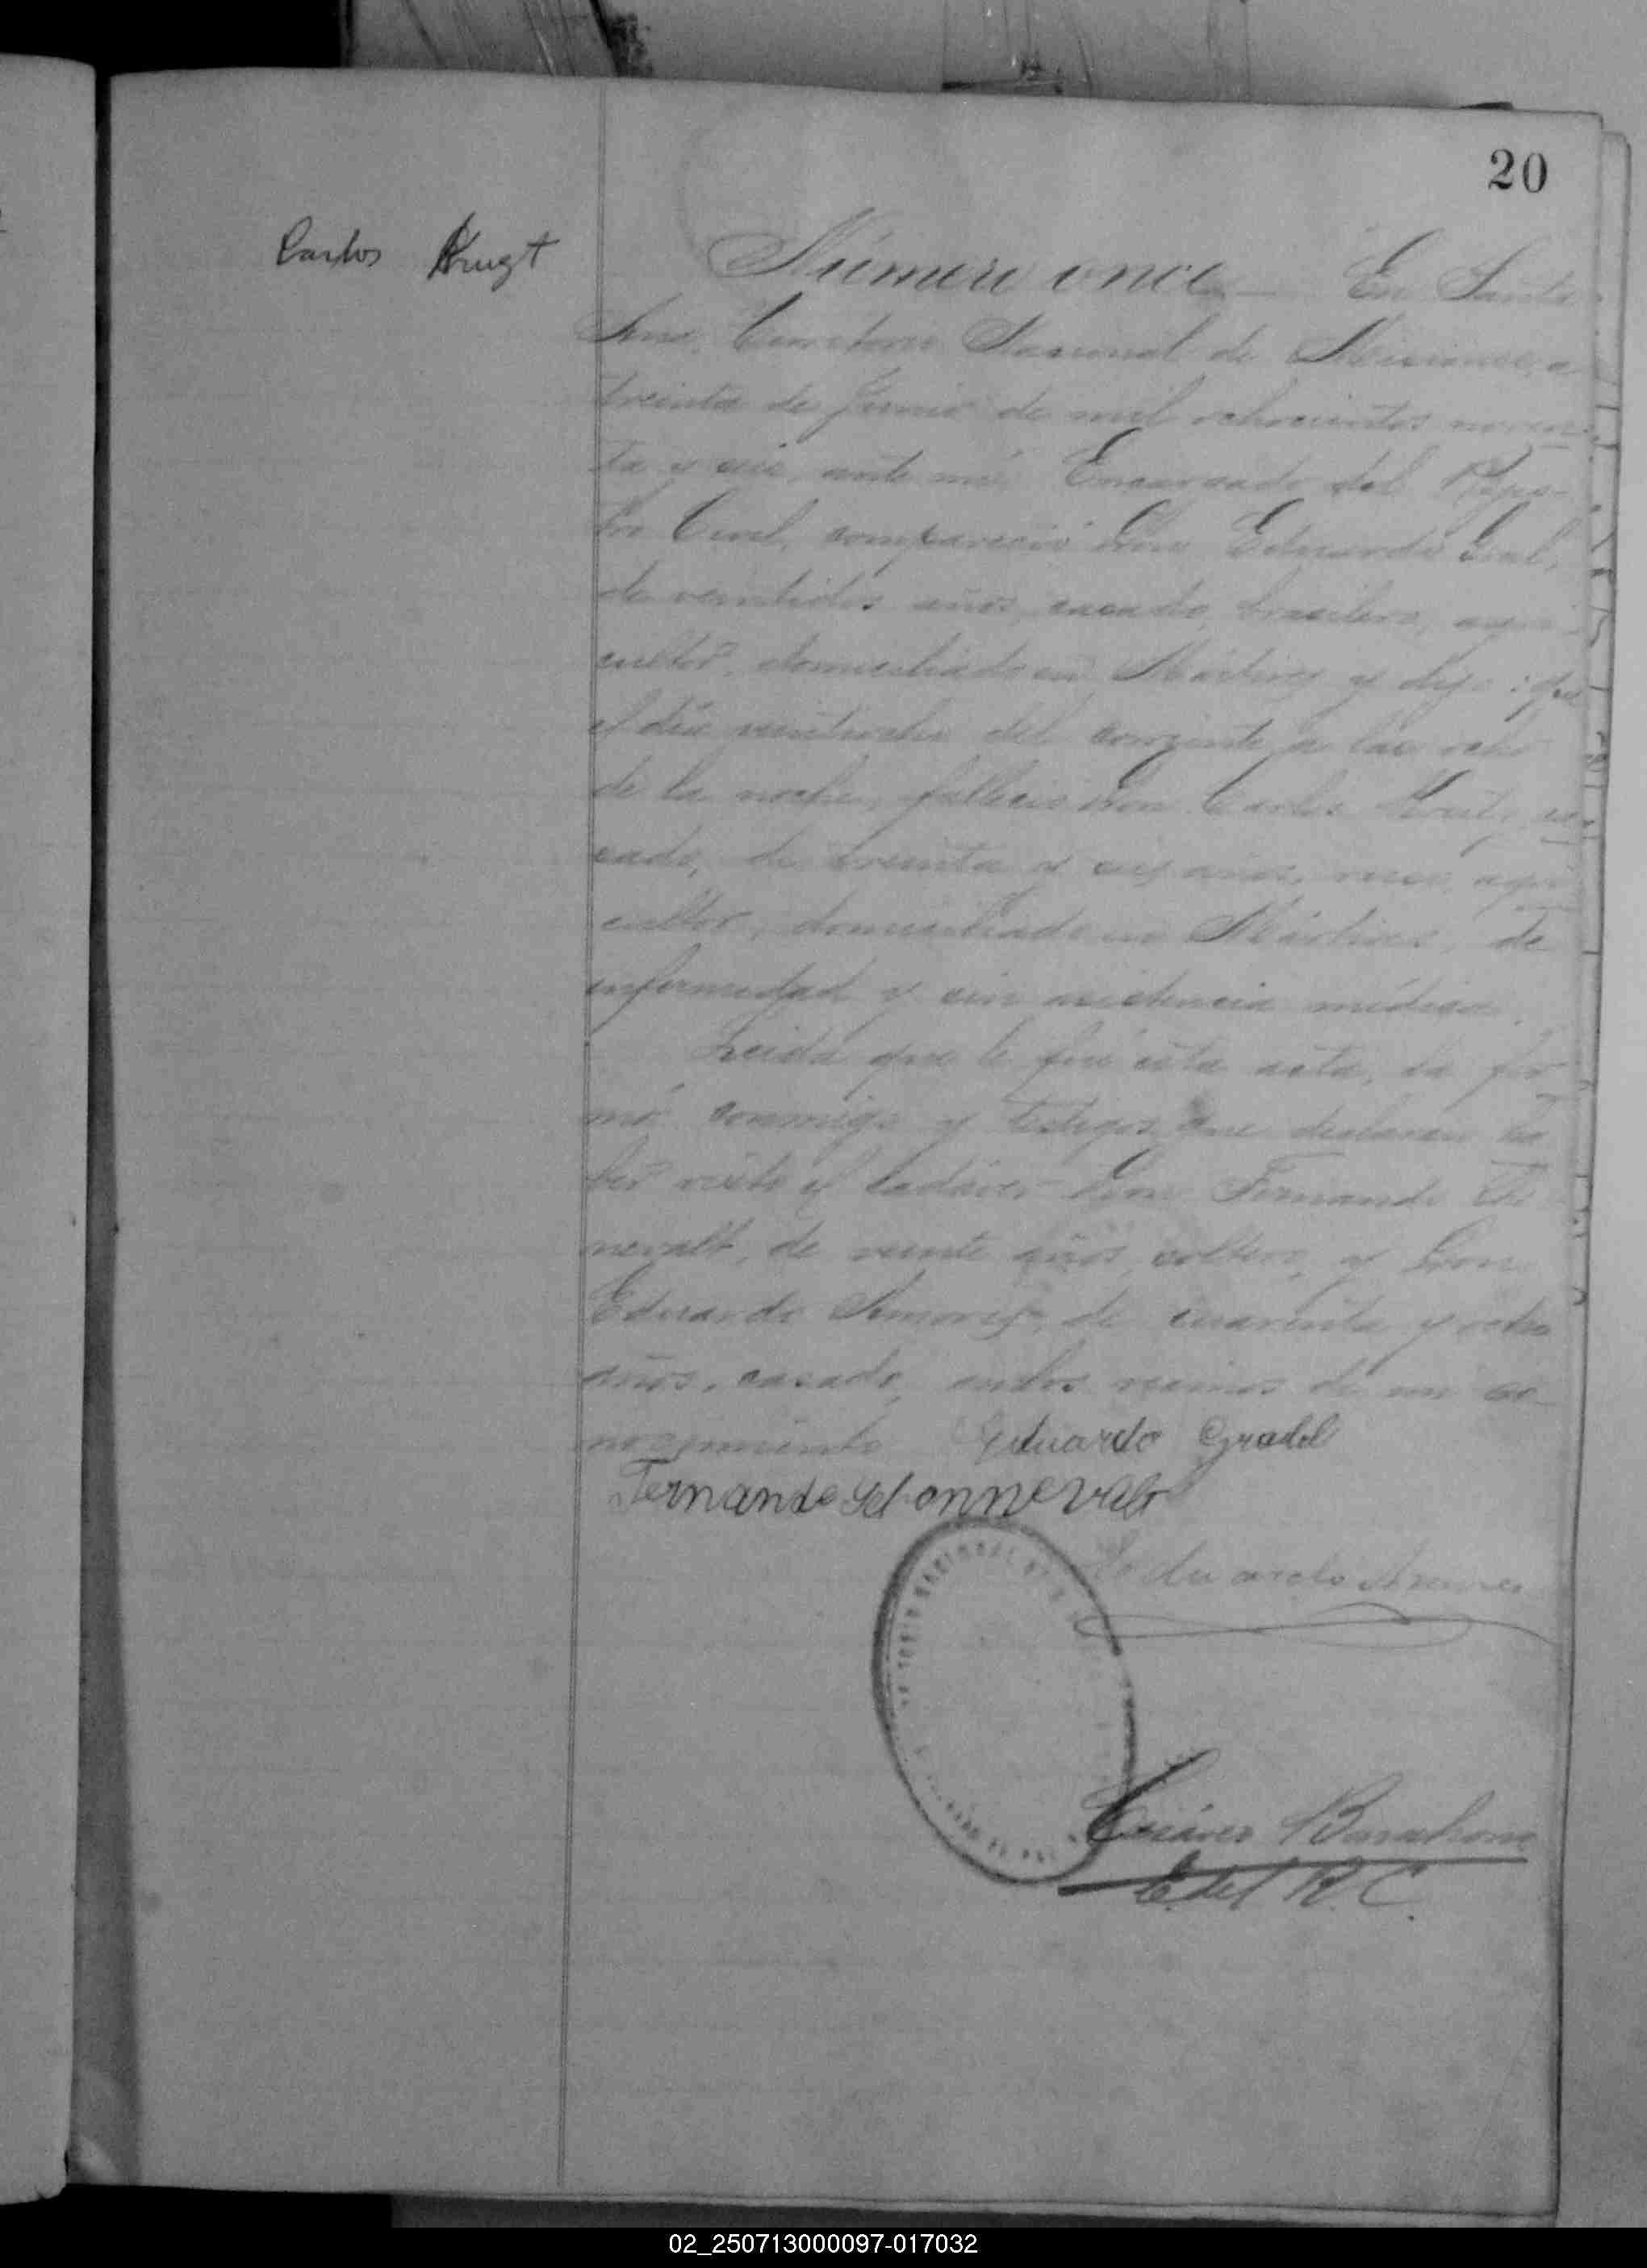 20
Carlos
Número once — En Santa
Ana, Territorio Nacional de Misiones, a
treinta de Junio de mil ochocientos noven-
ta y seis, ante mí Encargado del Regis-
tro Civil, compareció Don Eduardo
de veintidos años, casado, brasilero, agri-
cultor, domiciliado en Mártires y dijo: que
el día veintiocho del corriente a las ocho
de la noche, falleció Don Carlos ca-
sado, de treinta y seis años, ruso, agri-
cultor, domiciliado en Mártires, de
enfermedad y sin asistencia médica.
Leida que le fué esta acta, la fir-
mó conmigo y testigos que declaran ha-
ber visto el cadáver Don Fernando
nevalt, de veinte años, soltero, y Don
Eduardo de cuarenta y ocho
años, casado, ambos vecinos de mi co-
nocimiento Eduardo Gradol
Fernando
Eduardo
TORIO NACIONAL
Barahona
E. del R. C.
02_250713000097-017032